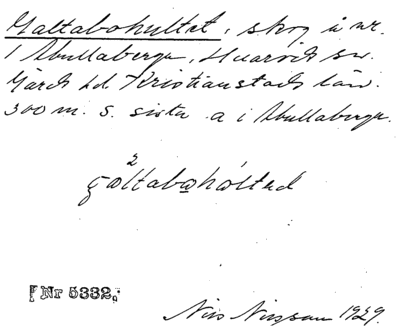 Galtabokultet, skog å nr.
1 Abullaberga, Huaröds sn.
Gärds hd Kristianstads län.
300 m. S. sista a i Abullaberga.
2
Nr 5332.
Nils Nilsson 1929.